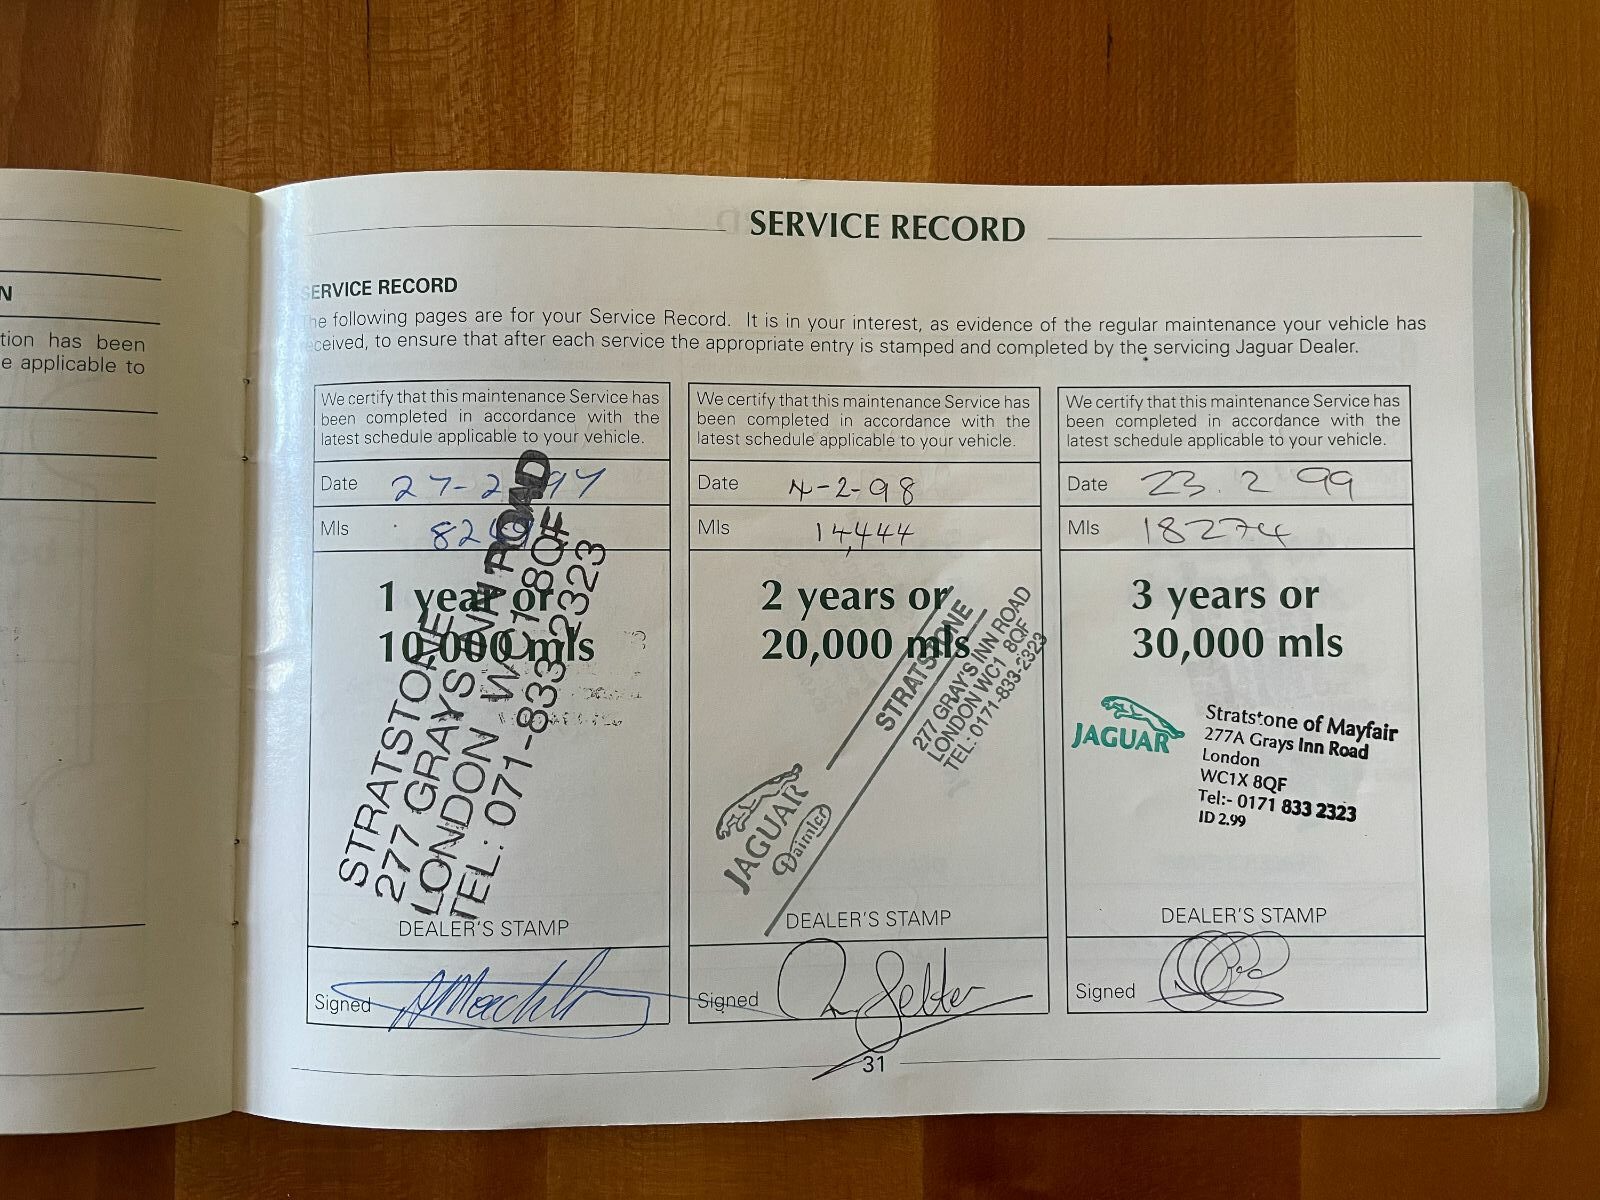 N
tion has been
e applicable to
SERVICE RECORD
SERVICE RECORD
The following pages are for your Service Record. It is in your interest, as evidence of the regular maintenance your vehicle has
received, to ensure that after each service the appropriate entry is stamped and completed by the servicing Jaguar Dealer.
We certify that this maintenance Service has
been completed in accordance with the
latest schedule applicable to your vehicle.
Date 27-2-97
Mls
1 year or
10,000 mls
STRATSTONE
277 GRAYS INN ROAD
LONDON WC1 8QF
TEL: 071-833 2323
DEALER'S STAMP
Signed
We certify that this maintenance Service has
been completed in accordance with the
latest schedule applicable to your vehicle.
Date 4-2-98
Mls 14,444
2 years or
20,000 mls
STRATSTONE
277 GRAY'S INN ROAD
LONDON WC1 8QF
TEL: 0171-833-2323
JAGUAR
Daimler
DEALER'S STAMP
Signed
We certify that this maintenance Service has
been completed in accordance with the
latest schedule applicable to your vehicle.
Date 23.2 99
Mls 18274
3 years or
30,000 mls
JAGUAR
Stratstone of Mayfair
277A Grays Inn Road
London
WC1X 8QF
Tel:- 0171 833 2323
ID 2.99
DEALER'S STAMP
Signed
31